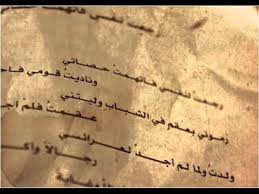 رجعت لنفسي
رجعت لنفسي فاتهمت حصاتي
وناديت قومي فاحـ
رموني بعقم في الشباب وليتني
عقمت فلم أجـ
ولدت ولما لم أجد لعرائسي
رجالاً وأكـ